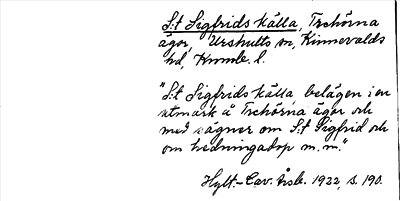 S:t Sigfrids källa, Trehörna
ägor, Urshults sn, Kinnevalds
hd, Kronob. l.
"S:t Sigfrids källa, belägen i en
utmark å Trehörna ägor och
med sägner om S:t Sigfrid och
om hedningadop m.m."
Hylt.-Cav. Årsb. 1922, s. 190.